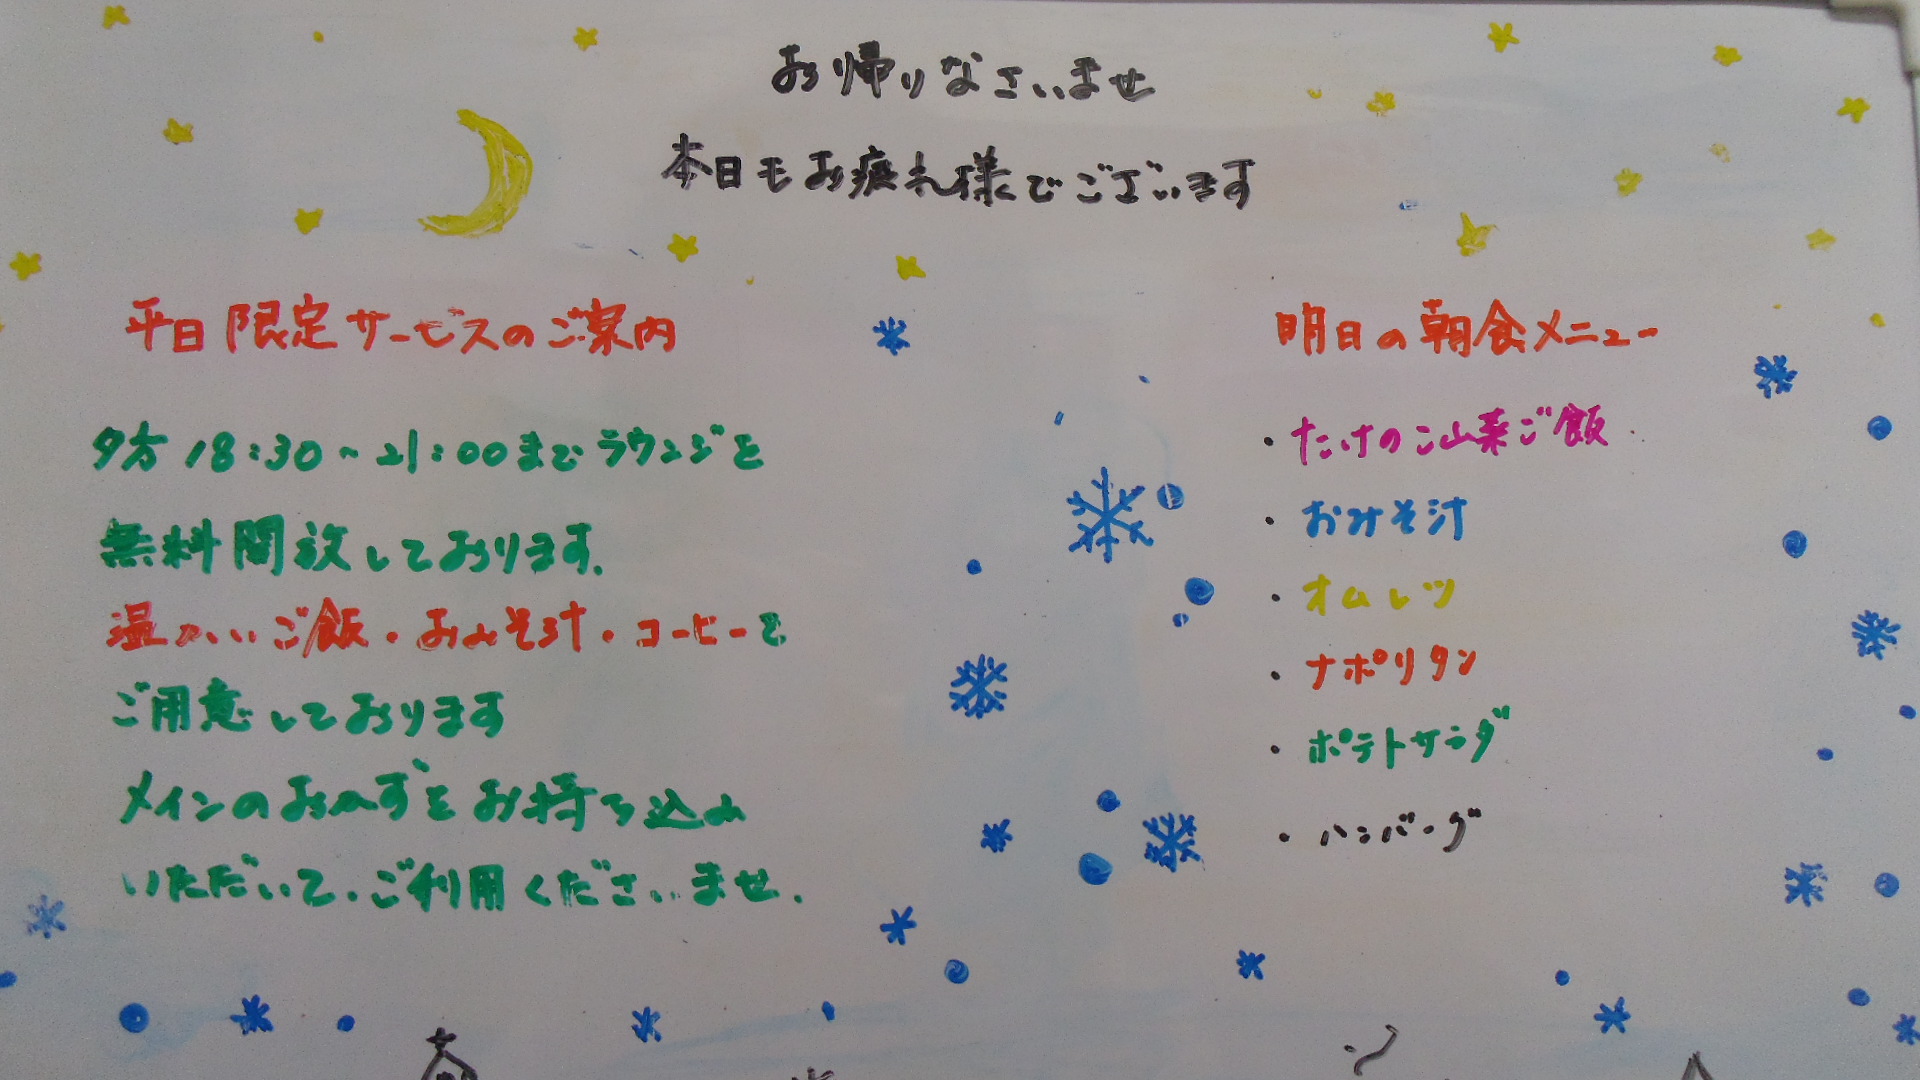 お帰りなさいませ
本日もお疲れ様でございます
平日限定サービスのご案内
夕方 18:30~21:00までラウンジを
無料開放しております.
温かいご飯・おみそ汁・コーヒーを
ご用意しております
メインのおかずをお持ち込み
いただいて、ご利用くださいませ.
明日の朝食メニュー
・たけのこ山菜ご飯
・おみそ汁
・オムレツ
・ナポリタン
・ポテトサラダ
・ハンバーグ